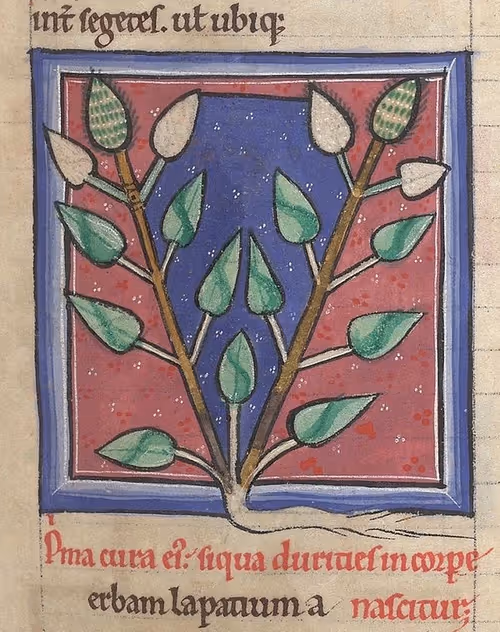 int segetes. ut ubiq;
Prima cura ei'. siqua durities in corpe
erbam lapatium a nascitur;